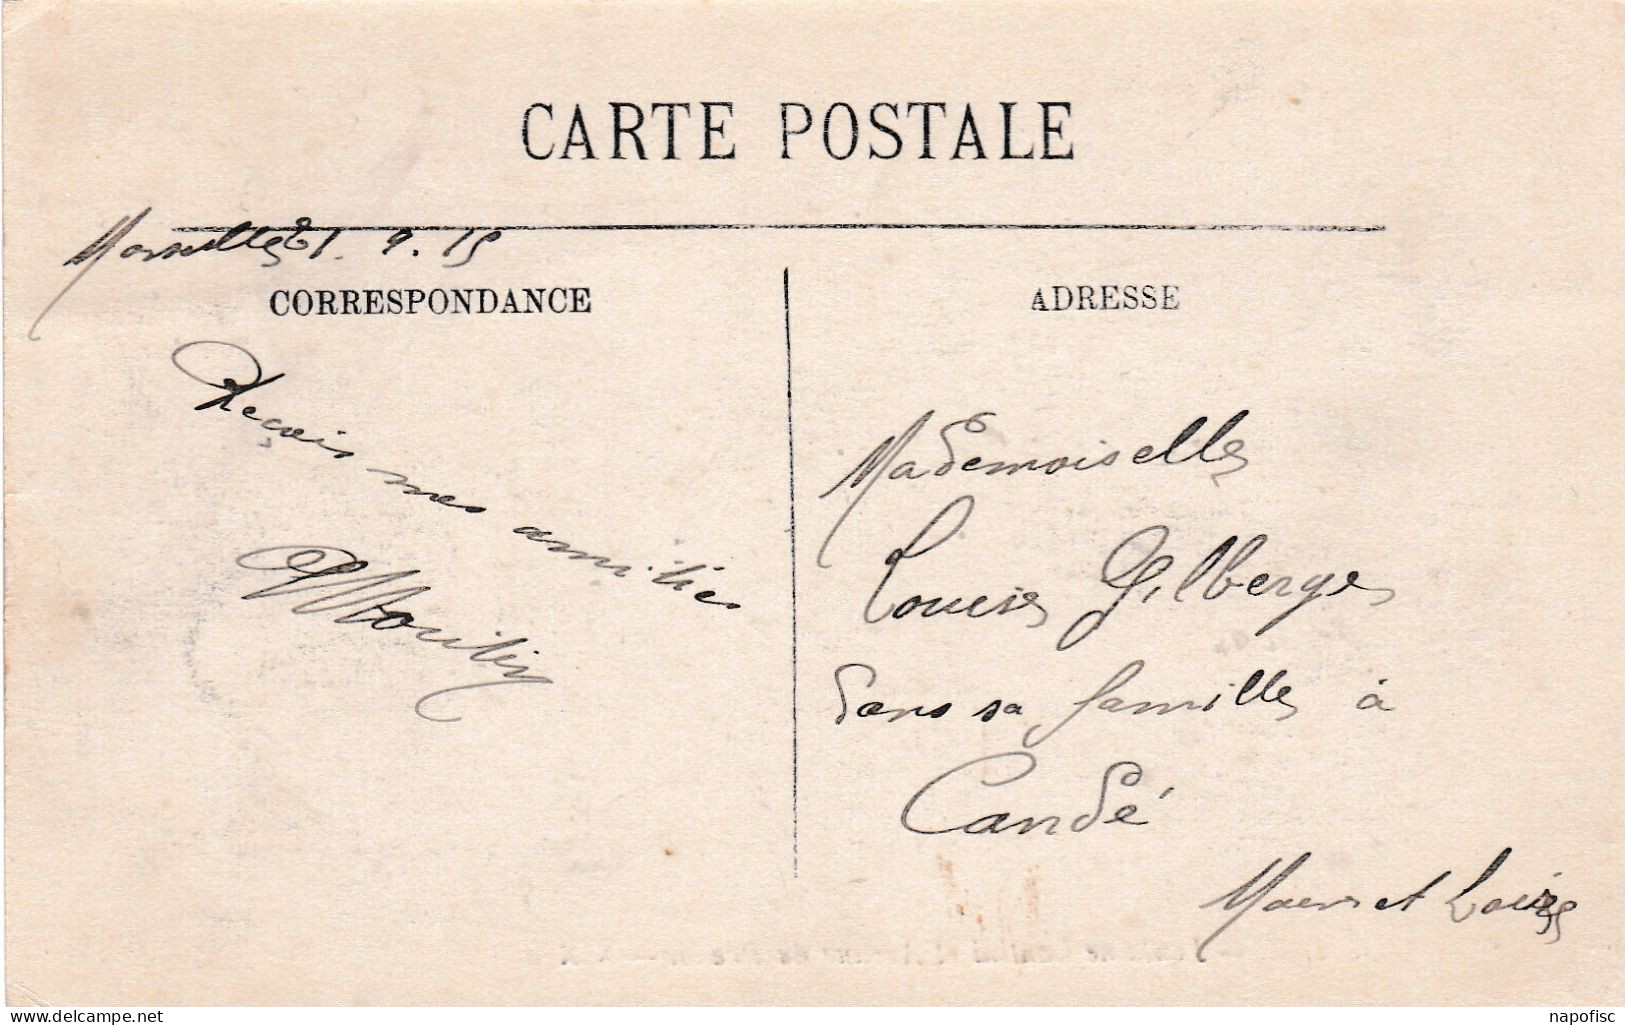 CARTE POSTALE
Marseille 21. 9. 15
CORRESPONDANCE
ADRESSE
Reçois mes amitiés
Mademoiselle
Louise Gilberge
dans sa famille à
Candé
Maine et Loire
www.delcampe.net
napofisc